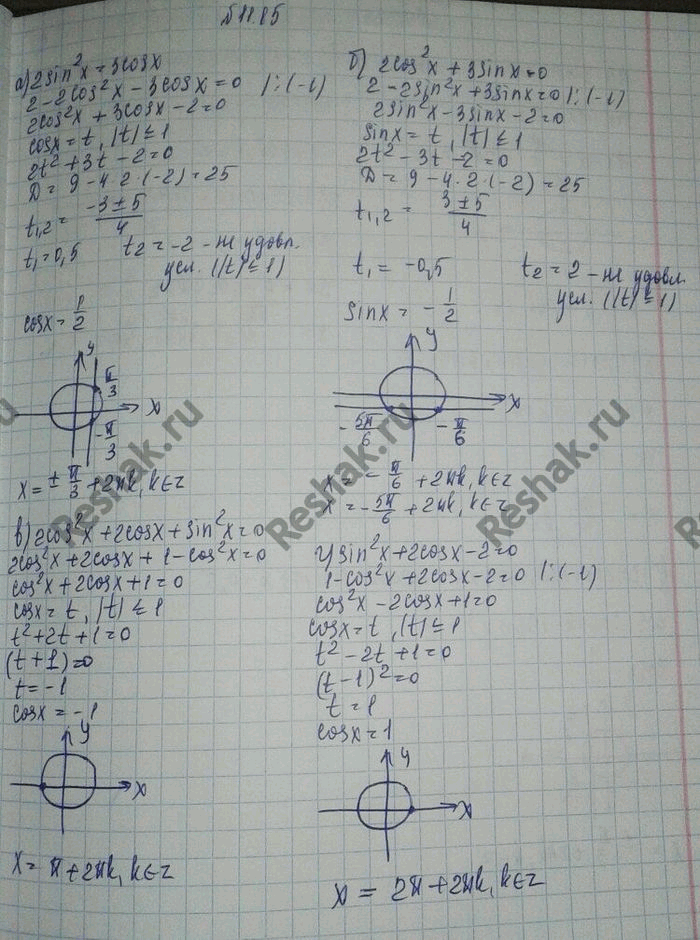 №11.85
а) 2sin²x=3cosx
2-2cos²x-3cosx=0 |:(-1)
2cos²x+3cosx-2=0
cosx=t, |t|≤1
2t²+3t-2=0
D=9-4·2·(-2)=25
t₁,₂=(-3±5)/4
t₁=0,5 t₂=-2 - не удовл.
усл. (|t|≤1)
cosx=1/2
y
π/3
x
-π/3
x=±π/3+2πk, k∈z
б) 2cos²x+3sinx=0
2-2sin²x+3sinx=0 |:(-1)
2sin²x-3sinx-2=0
sinx=t, |t|≤1
2t²-3t-2=0
D=9-4·2·(-2)=25
t₁,₂=(3±5)/4
t₁=-0,5 t₂=2 - не удовл.
усл. (|t|≤1)
sinx=-1/2
y
x
-5π/6 -π/6
x=-π/6+2πk, k∈z
x=-5π/6+2πk, k∈z
в) 2cos²x+2cosx+sin²x=0
2cos²x+2cosx+1-cos²x=0
cos²x+2cosx+1=0
cosx=t, |t|≤1
t²+2t+1=0
(t+1)=0
t=-1
cosx=-1
y
x
x=π+2πk, k∈z
г) sin²x+2cosx-2=0
1-cos²x+2cosx-2=0 |:(-1)
cos²x-2cosx+1=0
cosx=t, |t|≤1
t²-2t+1=0
(t-1)²=0
t=1
cosx=1
y
x
x=2π+2πk, k∈z
Reshak.ru
Reshak.ru
Reshak.ru